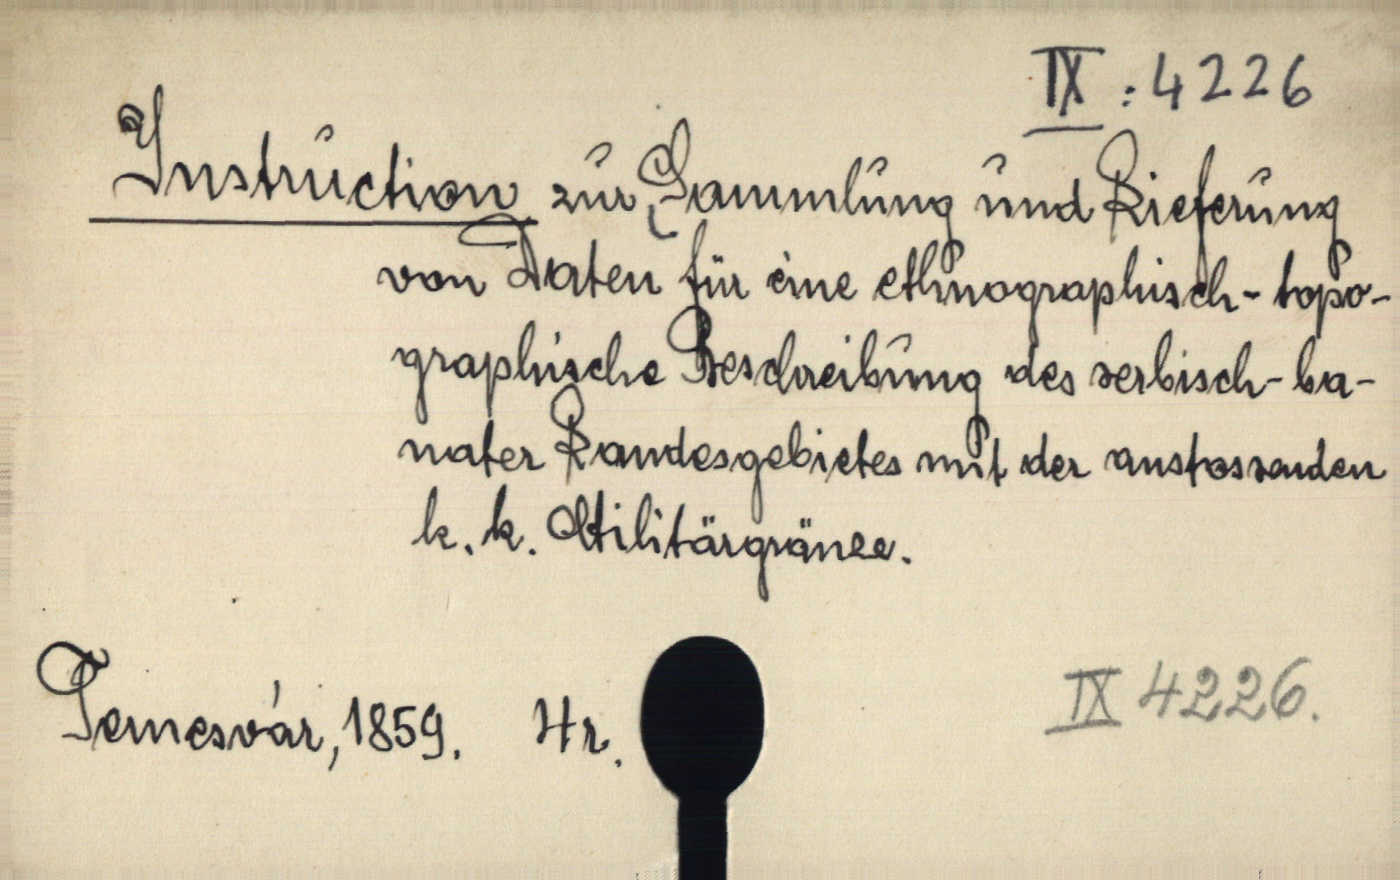 IX : 4226
Instruction zur Sammlung und Lieferung
von Daten für eine ethnographisch-topo-
graphische Beschreibung des serbisch-ba-
nater Landesgebietes mit der anstossenden
k. k. Militärgränze.
Temesvár, 1859. 4r.
IX 4226.